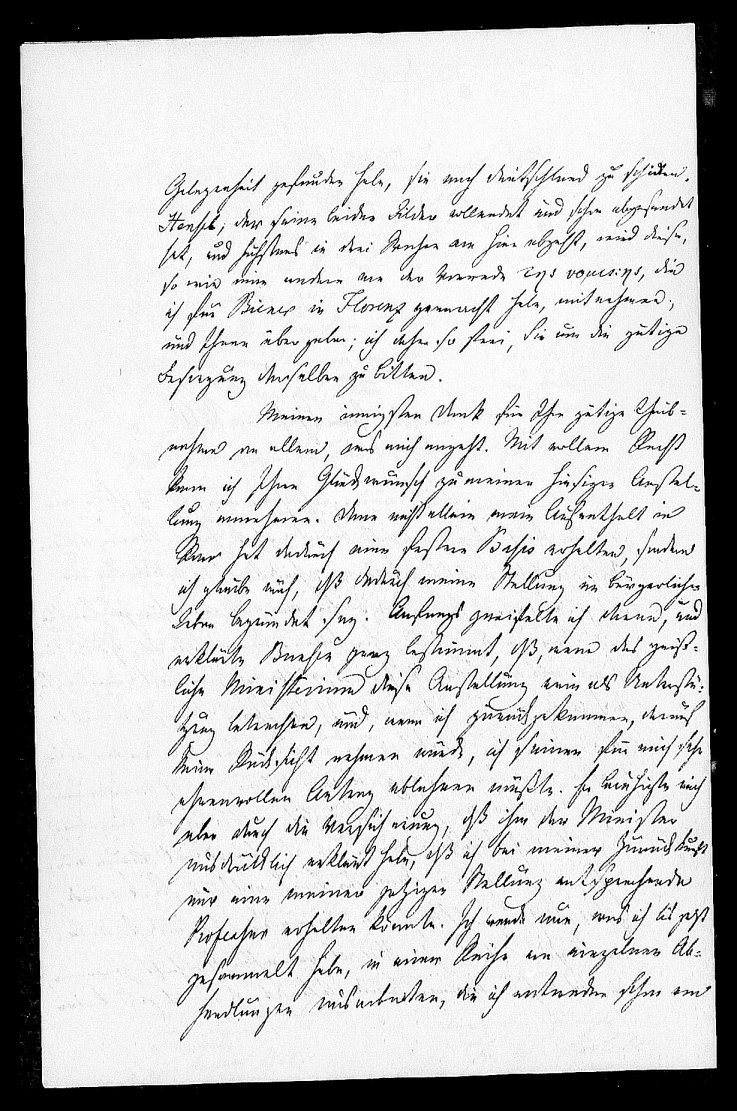 Gelegenheit gefunden habe, sie nach Deutschland zu schicken.
Hensel, der seine beiden Bilder vollendet und schon abgesendet
hat, und höchstens in drei Wochen von hier abgeht, wird diese,
so wie eine andere an der τησ, die
ich für Biener in Florenz gemacht habe, mitnehmen,
und Ihnen übergeben; ich daher so frei, Sie um die gütige
Besorgung derselben zu bitten.
Meinen innigsten Dank für Ihre gütige Theil-
nahme an allem, was mich angeht. Mit vollem Recht
kann ich Ihren Glückwunsch zu meiner hiesigen Anstel-
lung annehmen. Denn nicht allein mein Aufenthalt in
Rom hat dadurch eine festere Basis erhalten, sondern
ich glaube auch, daß dadurch meine Stellung im bürgerlichen
Leben begründet sey. Anfangs zweifelte ich daran, und
erklärte Bunsen ganz bestimmt, daß, wenn das geist-
liche Ministerium diese Anstellung nur als Unterstü-
tzung betrachten, und, wenn ich zurückgekommen, darauf
keine Rücksicht nehmen würde, ich seinen für mich sehr
ehrenvollen Antrag ablehnen müßte. Er beruhigte mich
aber durch die Versicherung, daß ihm der Minister
ausdrücklich erklärt habe, daß ich bei meiner Zurückkunft
nur eine meiner jetzigen Stellung entsprechende
Professur erhalten könnte. Ich werde nun, was ich bis jetzt
gesammelt habe, in einer Reihe von einzelnen Ab-
handlungen ausarbeiten, die ich entweder schon von